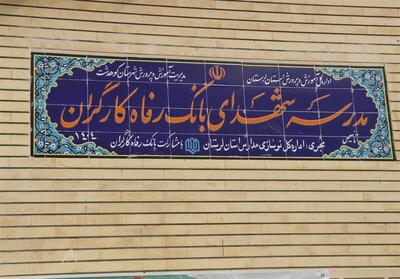 اداره کل آموزش و پرورش استان لرستان
مدیریت آموزش و پرورش شهرستان کوهدشت
مدرسه شهدای بانک رفاه کارگران
مجری: اداره کل نوسازی مدارس استان لرستان با مشارکت بانک رفاه کارگران
تاسیس
۱۴۰۴